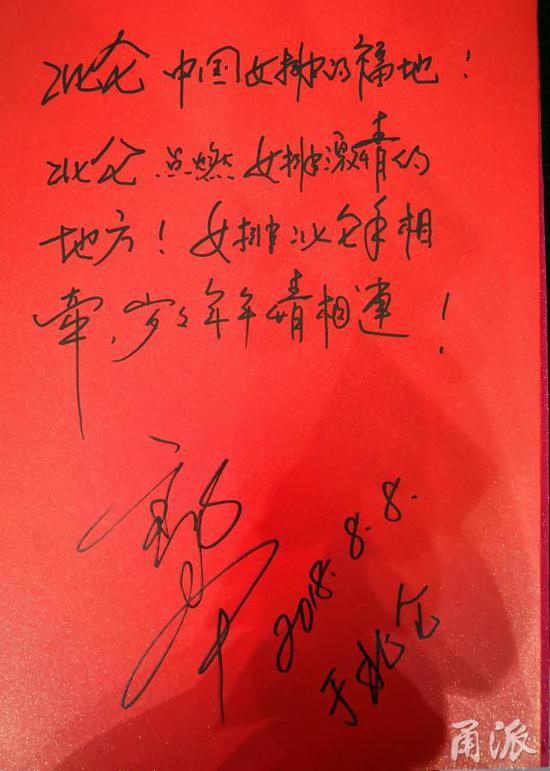 北仑 中国女排的福地！
北仑 点燃女排激情的
地方！女排北仑手相
牵，岁岁年年情相連！
2018.8.8.
于北仑
甬派